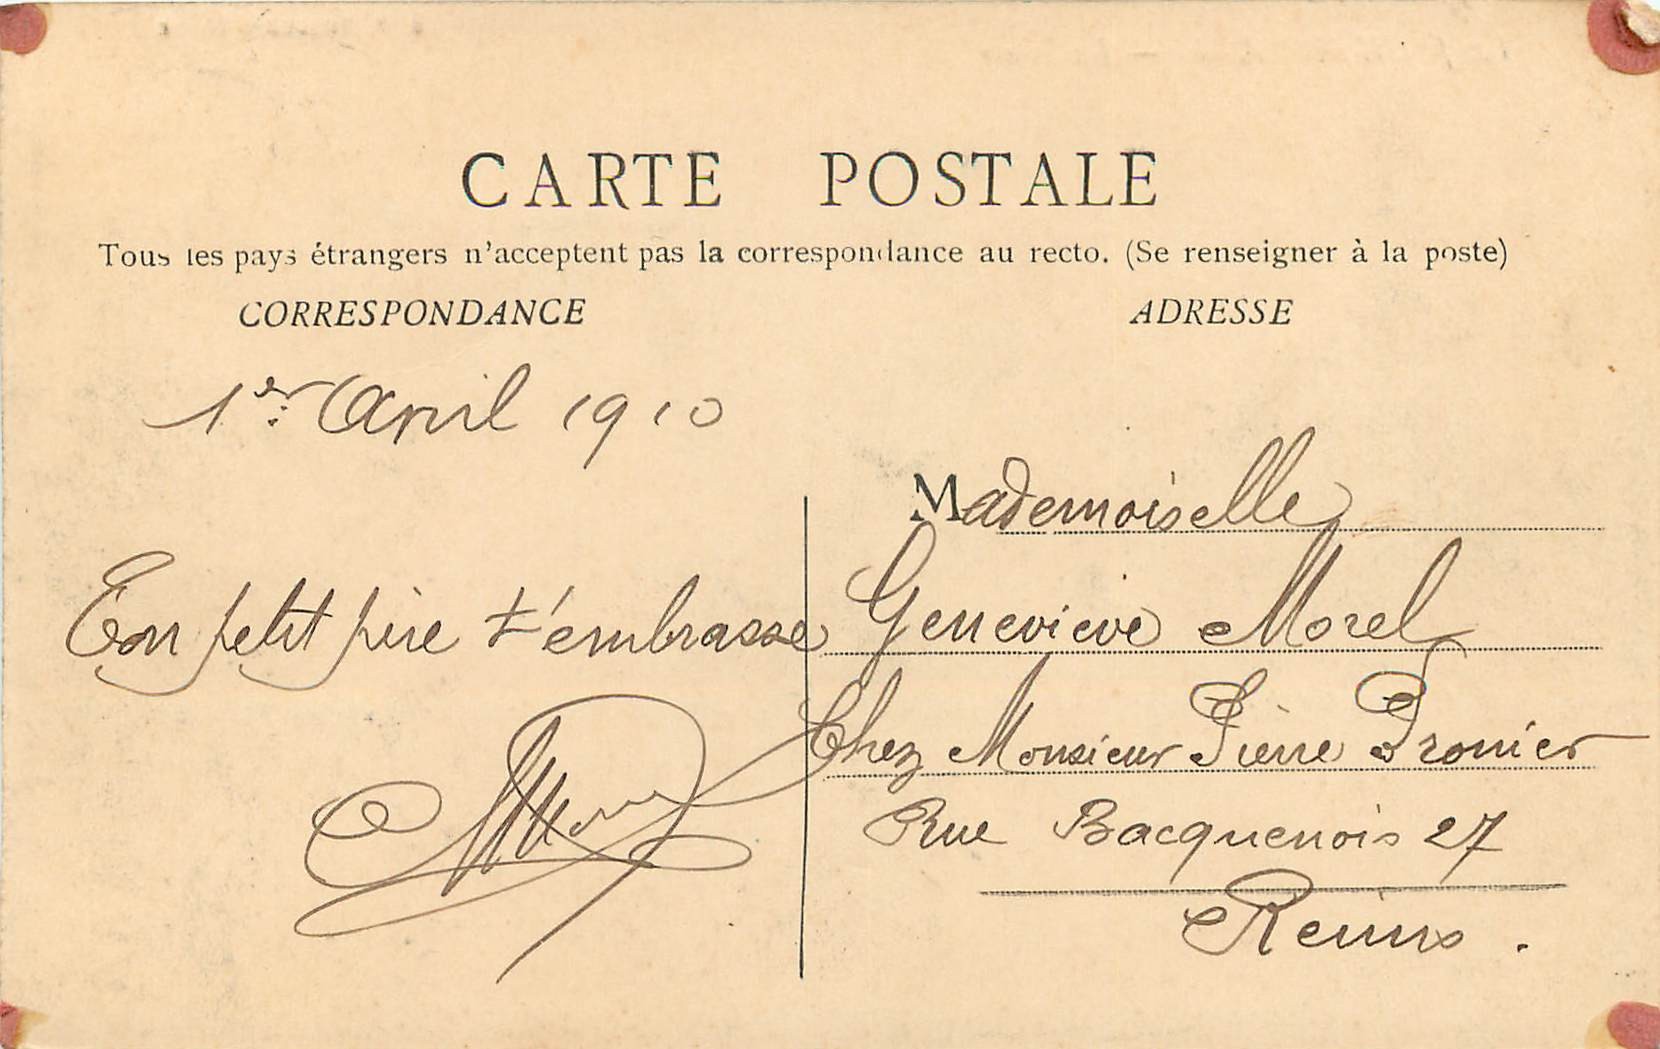 CARTE POSTALE
Tous les pays étrangers n'acceptent pas la correspondance au recto. (Se renseigner à la poste)
CORRESPONDANCE
ADRESSE
1er Avril 1910
Ton petit père t'embrasse
Mademoiselle
Geneviève Morel
Chez Monsieur Pierre Pronier
Rue Bacquenois 27
Reims.